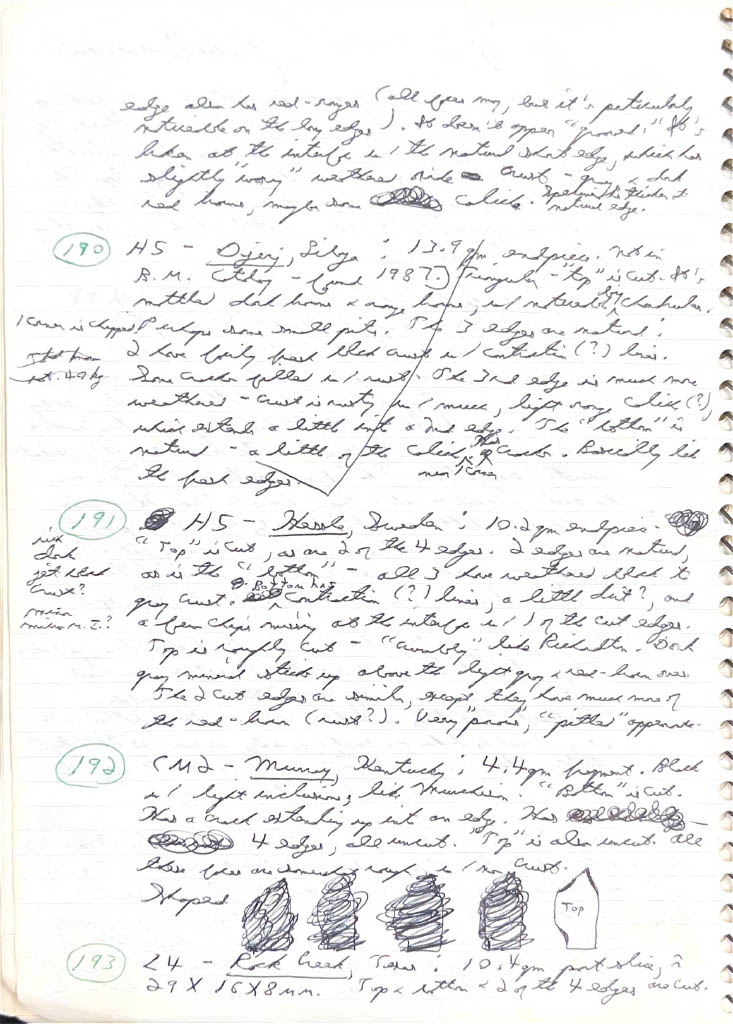 edge also has red-ranges (all faces may, but it's particularly
noticeable on the long edges). It doesn't appear "grooved." It's
taken at the interface w/ the natural short edge, which has
slightly "wavy" weathered side crust - gray & dark
red brown, maybe some caliche. Specimen is thickest
natural edge.
190 H5 - Djerj, Libya : 13.9 gm endpiece. Not in
B.M. Catalog - found 1987. Triangular - "top" is cut. It's
mottled dark brown & orange brown, w/ noticeable chondrules.
1 corner is chipped
Perhaps some small pits. The 3 edges are natural;
2 have fairly fresh black crust w/ contraction (?) lines.
Some cracks filled w/ rust. The 3rd edge is much more
weathered - crust is rusty w/ much, light orange caliche (?),
which extends a little into a 2nd edge. The "bottom" is
natural - a little of the caliche, has cracks. Basically like
near 1 corner
the fresh edges.
191 H5 - Hessle, Sweden : 10.2 gm endpiece.
"Top" is cut, as are 2 of the 4 edges. 2 edges are natural,
rich
dark
jet black
crust?
as is the "bottom" - all 3 have weathered black to
gray crust. Bottom has contraction (?) lines, a little dirt?, and
a few chips missing at the interface w/ 1 of the cut edges.
Top is roughly cut - "crumbly" like Richardton. Dark
gray mineral sticks up above the light gray & red-brown areas.
The 2 cut edges are similar, except they have much more of
the red-brown (rust?). Very porous, "pitted" appearance.
192 CM2 - Murray, Kentucky ; 4.4 gm fragment. Black
w/ light inclusions, like Murchison. "Bottom" is cut.
Has a crack extending up into an edge. Has
4 edges, all uncut. "Top" is also uncut. All
these faces are somewhat rough, w/ no crust.
Shaped
Top
193 L4 - Rock Creek, Texas : 10.4 gm part slice, ≈
29 X 16 X 8 mm. Top & bottom & 2 of the 4 edges are cut.